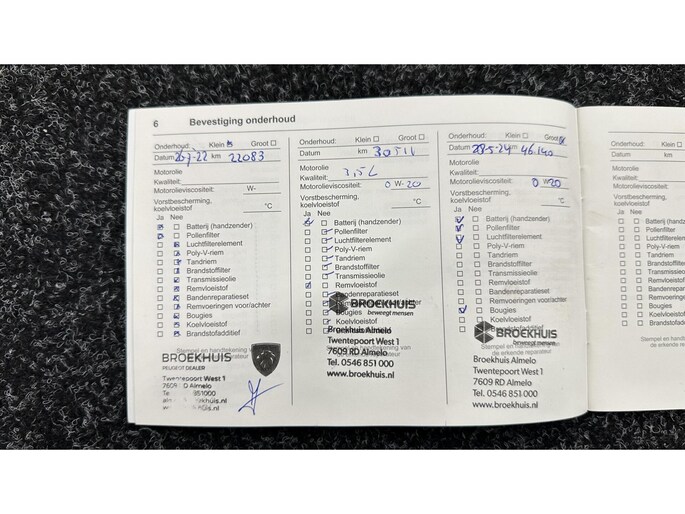 6 Bevestiging onderhoud
Onderhoud: Klein Groot
Datum 22 km 22083
Motorolie
Kwaliteit:
Motorolieviscositeit: W-
Vorstbescherming,
koelvloeistof °C
Ja Nee
Batterij (handzender)
Pollenfilter
Luchtfilterelement
Poly-V-riem
Tandriem
Brandstoffilter
Transmissieolie
Remvloeistof
Bandenreparatieset
Remvoeringen voor/achter
Bougies
Koelvloeistof
Brandstofadditief
Stempel en handtekening van
BROEKHUIS
PEUGEOT DEALER
Twentepoort West 1
D Almelo
851000
Onderhoud: Klein Groot
Datum km 30511
Motorolie
Kwaliteit: 3,5L
Motorolieviscositeit: 0 W-20
Vorstbescherming,
koelvloeistof °C
Ja Nee
Batterij (handzender)
Pollenfilter
Luchtfilterelement
Poly-V-riem
Tandriem
Brandstoffilter
Transmissieolie
Remvloeistof
Bandenreparatieset
Bougies
Koelvloeistof
BROEKHUIS
beweegt mensen
Broekhuis Almelo
Twentepoort West 1
7609 RD Almelo
Tel. 0546 851 000
www.broekhuis.nl
Onderhoud: Klein Groot
Datum 28-5-24 km 46.140
Motorolie
Kwaliteit:
Motorolieviscositeit: 0 W-20
Vorstbescherming,
koelvloeistof °C
Ja Nee
Batterij (handzender)
Pollenfilter
Luchtfilterelement
Poly-V-riem
Tandriem
Brandstoffilter
Transmissieolie
Remvloeistof
Bandenreparatieset
Remvoeringen voor/achter
Bougies
Koelvloeistof
Brandstofadditief
Stempel en handtekening van
de erkende reparateur
BROEKHUIS
beweegt mensen
Broekhuis Almelo
Twentepoort West 1
7609 RD Almelo
Tel. 0546 851 000
www.broekhuis.nl
Onderhoud:
Datum
Motorolie
Kwaliteit:
Motorolieviscositeit:
Vorstbescherming,
koelvloeistof
Ja Nee
Batterij (hand
Pollenfilter
Luchtfilterele
Poly-V-riem
Tandriem
Brandstoffilte
Transmissieo
Remvloeistof
Bandenrepar
Remvoeringe
Bougies
Koelvloeistof
Brandstofadd
Stempel en ha
de erken